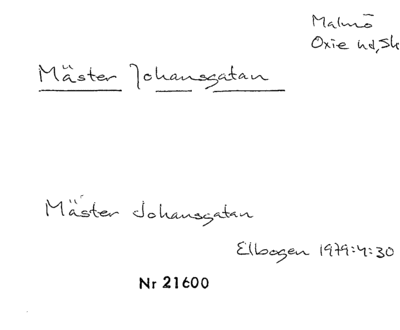 Malmö
Oxie hd, Sk
Mäster Johansgatan
Mäster Johansgatan
Elbogen 1979:4:30
Nr 21600